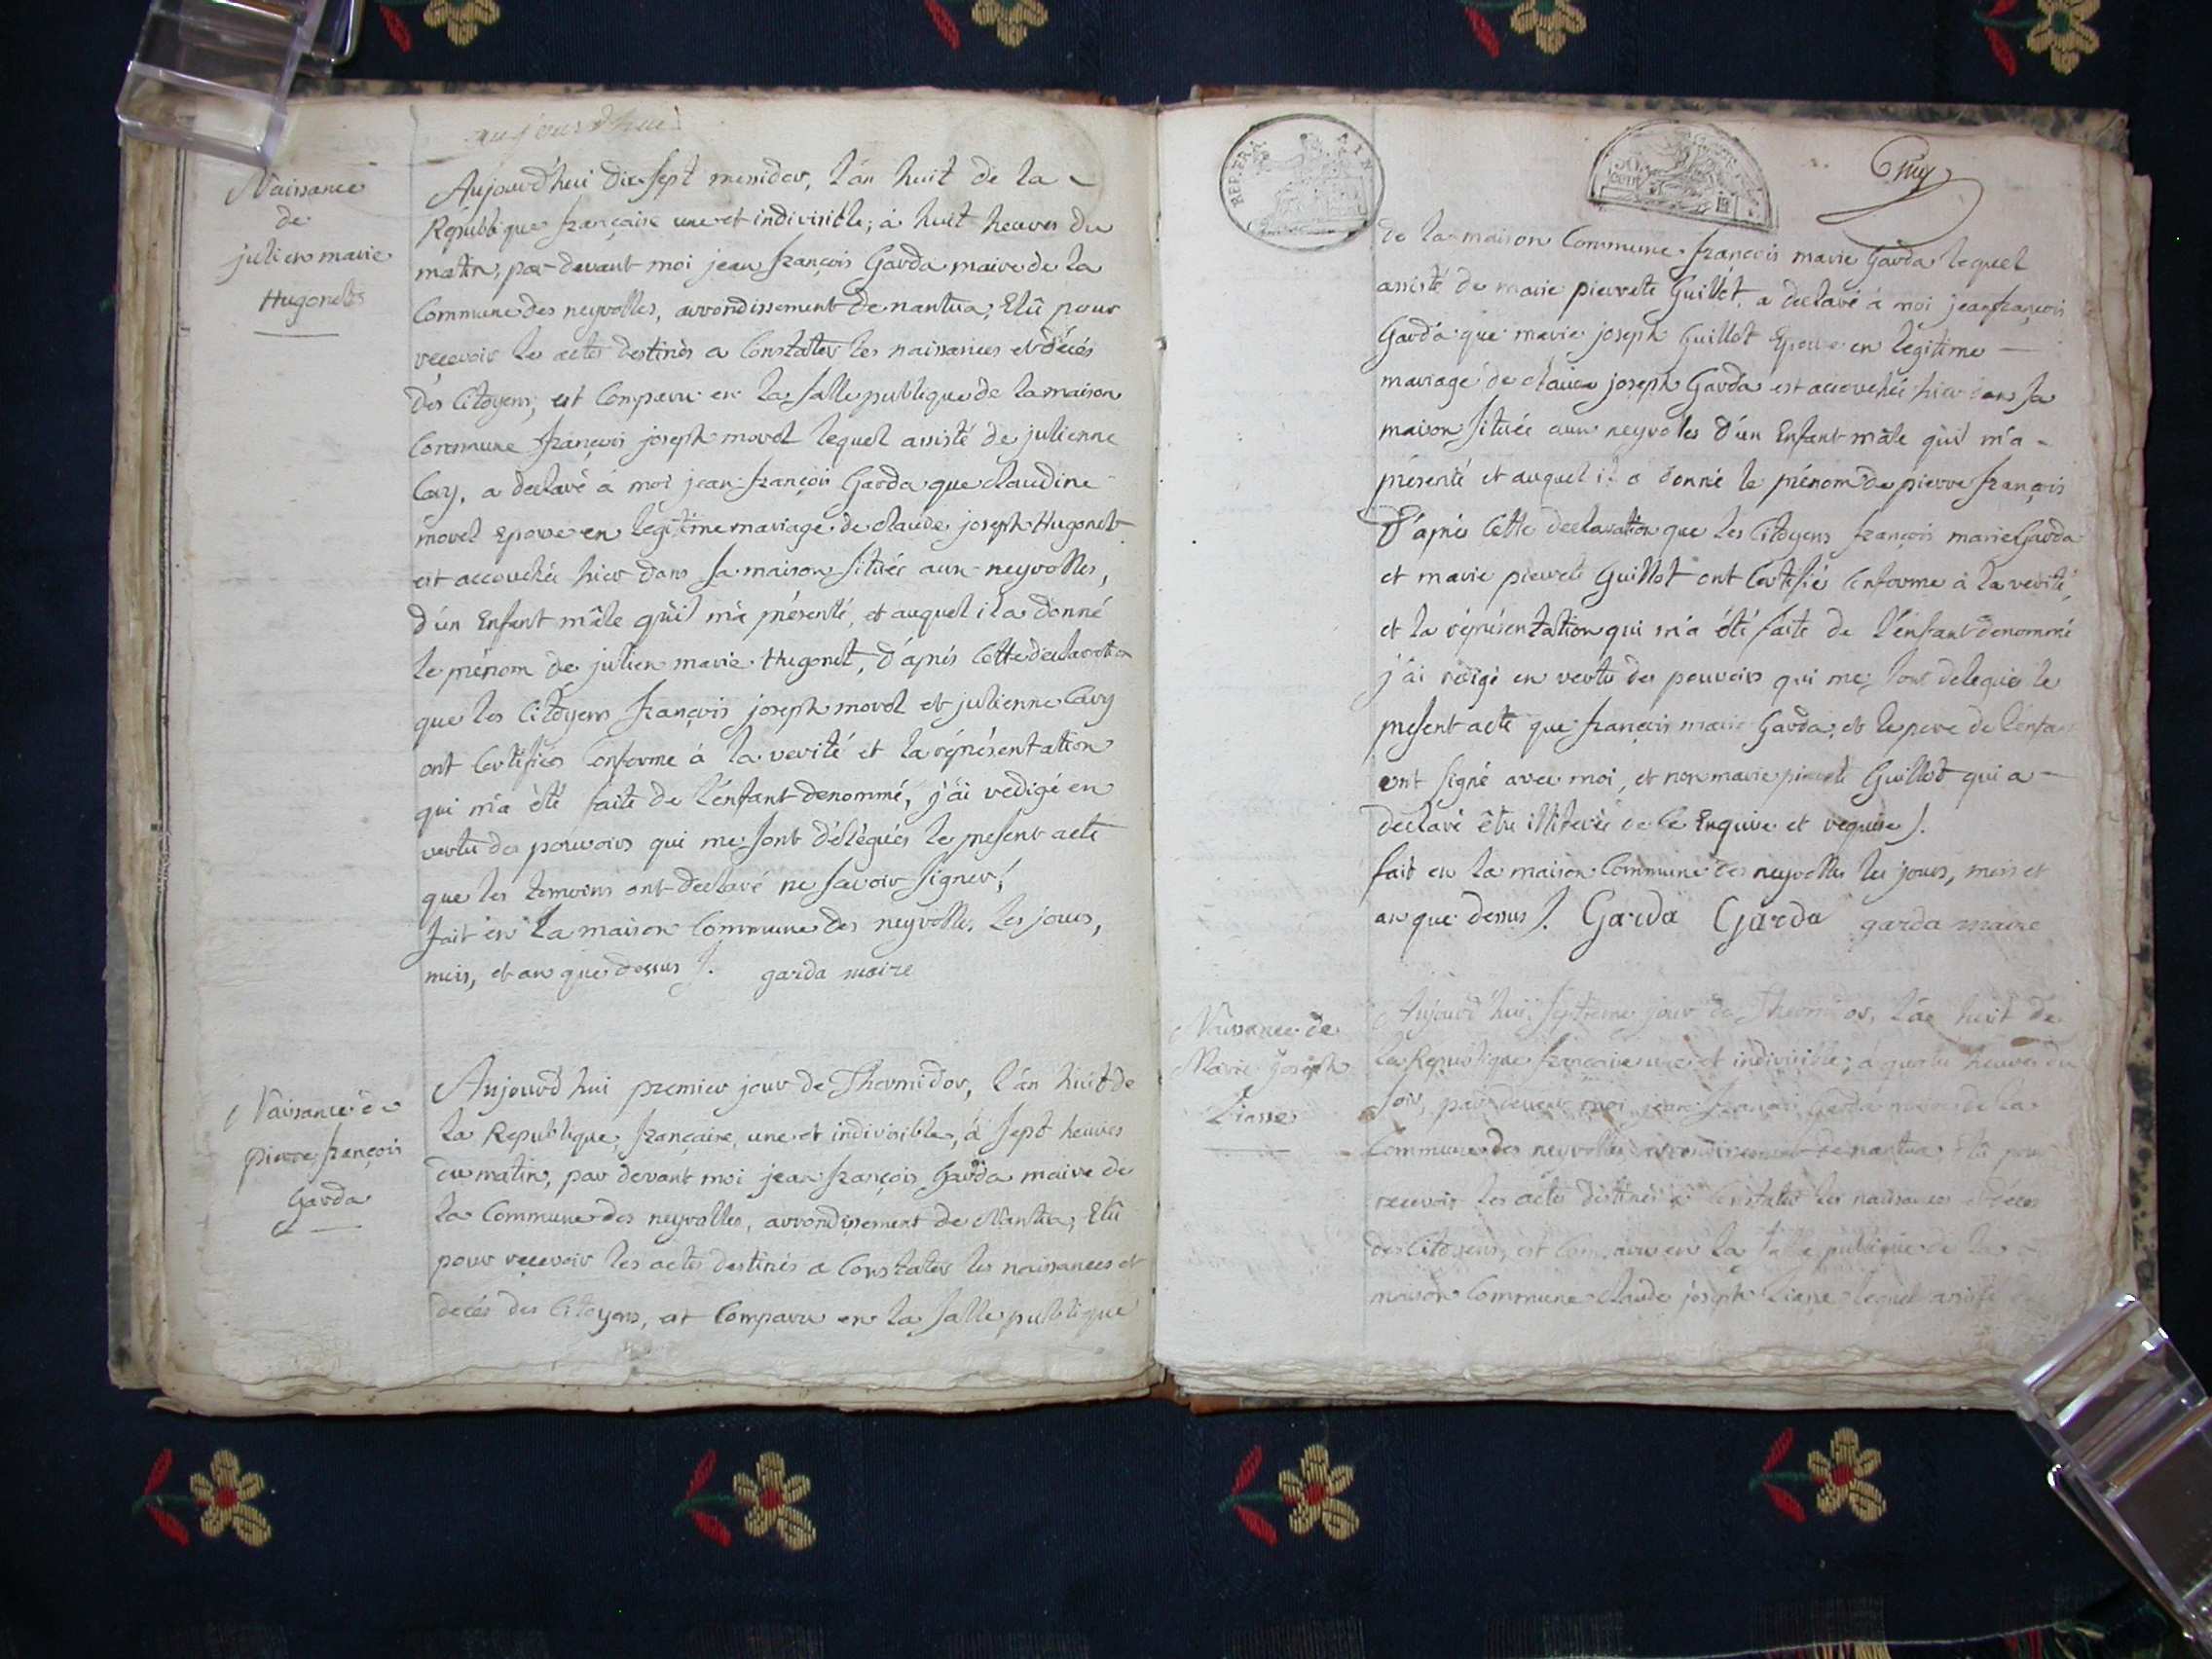 aujourd'hui
Naissance
de
julien marie
Hugonet
Aujourd'hui dix sept messidor, l'an huit de la
République française une et indivisible; à huit heures du
matin, par devant moi jean françois Garda maire de la
Commune des neyrolles, arrondissement de nantua, Elû pour
recevoir les actes destinés a Constater les naissances et décés
des Citoyens, est Comparu en la salle publique de la maison
Commune françois joseph morel lequel assisté de julienne
Cary, a declaré à moi jean françois Garda que claudine
morel Epouse en légitime mariage de claude joseph Hugonet
est accouchée hier dans sa maison située aux neyrolles,
d'un Enfant mâle qu'il m'a présenté, et auquel il a donné
le prénom de julien marie Hugonet, d'aprés Cette declaration
que les Citoyens françois joseph morel et julienne Cary
ont Certifiés Conforme à la verité et la réprésentation
qui m'a été faite de l'enfant denommé, j'ai redigé en
vertu des pouvoirs qui me sont délégués le present acte
que les temoins ont declaré ne savoir signer;
fait en la maison Commune des neyrolles, les jours,
mois, et an que dessus ∫. garda maire
Naissance de
pierre françois
Garda
Aujourd hui premier jour de Thermidor, l'an huit de
la Republique, française, une et indivisible, à sept heures
du matin, par devant moi jean françois Garda maire de
la Commune des neyrolles, arrondissement de Nantua, Elû
pour recevoir les actes destinés a Constater les naissances et
decés des Citoyens, est Comparu en la salle publique
REP. FRA. AIN
de la maison Commune françois marie Garda lequel
assisté de marie pierrete Guillot, a declaré à moi jean françois
Garda que marie joseph Guillot Epouse en légitime
mariage de claude joseph Garda est accouchée hier dans sa
maison située aux neyrolles d'un Enfant mâle qu'il m'a
présenté et auquel il a donné le prénom de pierre françois
D'aprés Cette declaration que les Citoyens françois marie Garda
et marie pierrete Guillot ont Certifié Conforme à la verité,
et la réprésentation qui m'a été faite de l'enfant denommé
j'ai redigé en vertu des pouvoirs qui me sont delegués le
present acte que françois marie Garda, et le pere de l'enfant
ont signé avec moi, et non marie pierrete Guillot qui a
declaré être illiterée de Ce Enquise et requise ∫.
fait en la maison Commune des neyrolles les jours, mois et
an que dessus ∫. Garda Garda garda maire
Naissance de
Marie Joseph
Liasse
Aujourd'hui, septieme jour de Thermidor, l'an huit de
la Republique française une et indivisible; à quatre heures du
soir, par devant moi jean françois Garda maire de la
Commune des neyrolles arrondissement de nantua Elû pour
recevoir les actes destinés a Constater les naissances et décés
des Citoyens, est Comparu en la salle publique de la
maison Commune Claude joseph Liasse lequel assisté